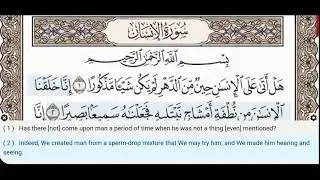 سُورَةُ الْإِنْسَانِ
بِسْمِ اللَّهِ الرَّحْمَٰنِ الرَّحِيمِ
هَلْ أَتَىٰ عَلَى الْإِنْسَٰنِ حِينٌ مِّنَ الدَّهْرِ لَمْ يَكُن شَيْـًٔا مَّذْكُورًا ١ إِنَّا خَلَقْنَا
الْإِنسَٰنَ مِن نُّطْفَةٍ أَمْشَاجٍ نَّبْتَلِيهِ فَجَعَلْنَٰهُ سَمِيعًۢا بَصِيرًا ٢ إِنَّا
( 1 ) Has there [not] come upon man a period of time when he was not a thing [even] mentioned?
( 2 ) Indeed, We created man from a sperm-drop mixture that We may try him; and We made him hearing and
seeing.